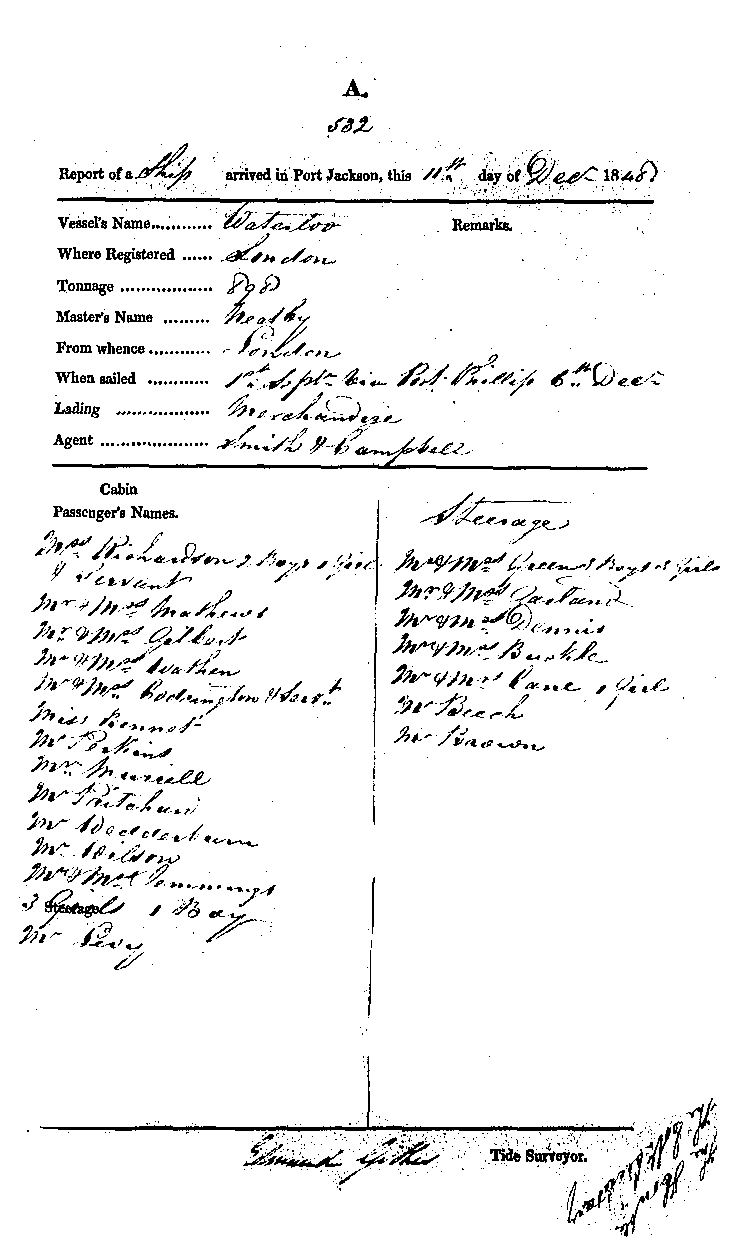 A.
532
Report of a Ship arrived in Port Jackson, this 11th day of Decr 1848
Vessel's Name........... Waterloo
Remarks.
Where Registered ...... London
Tonnage .................. 898
Master's Name ......... Neatby
From whence............ London
When sailed ............ 1st Septr via Port Phillip 6th Decr
Lading .................. Merchandize
Agent ..................... Smith & Campbell
Cabin
Passenger's Names.
Mrs Richardson 2 Boys 1 Girl
& Servant
Mr & Mrs Mathews
Mr & Mrs Gilbert
Mr & Mrs Wathen
Mr & Mrs Codrington & Servt
Miss Bennet
Mr Perkins
Mr Murcell
Mr Pritchard
Mr Wedderburn
Mr Wilson
Mr & Mrs Jemmings
3 Girls 1 Boy
Steerage
Mr Levy
Steerage
Mr & Mrs Green 3 Boys 3 Girls
Mr & Mrs Garland
Mr & Mrs Dennis
Mr & Mrs Buckle
Mr & Mrs Cane 1 Girl
Mr Beech
Mr Brown
Edmund Gilkes Tide Surveyor.
The
The